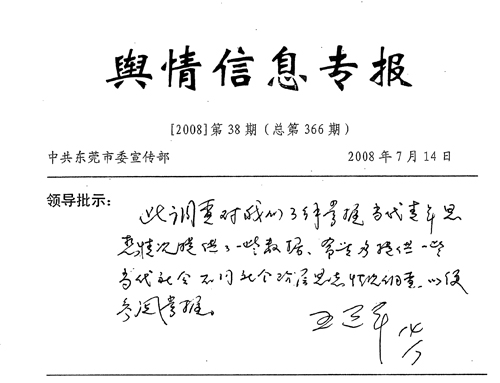 舆情信息专报
[2008]第38期（总第366期）
中共东莞市委宣传部 2008年7月14日
领导批示：
此调查对我们了解掌握当代青年思
想情况提供了一些数据、希望多提供一些
当代社会不同社会阶层思想情况调查，以便
参阅掌握。